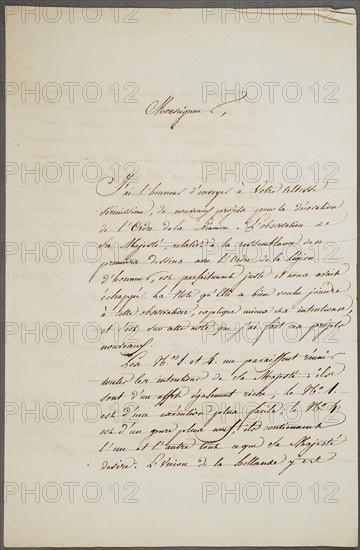 Monseigneur,
J'ai l'honneur d'envoyer à Votre Altesse
Sérénissime, de nouveaux projets pour la décoration
de l'Ordre de la Réunion. L'observation de
Sa Majesté, relative à la ressemblance des
premiers dessins avec l'Ordre de la Légion
d'honneur, est parfaitement juste et nous avait
échappé. La Note qu'Elle a bien voulu joindre
à cette observation, explique mieux ses intentions,
et c'est sur cette note que j'ai fait ces projets
nouveaux.
Les Nos 1 et 4. me paraissent réunir
toutes les intentions de Sa Majesté : ils
sont d'un effet également riche, le No 1.
est d'une exécution plus facile : le No 4.
est d'un genre plus neuf : ils contiennent
l'un et l'autre tout ce que Sa Majesté
désire. L'Union de la hollande y est
PHOTO 12